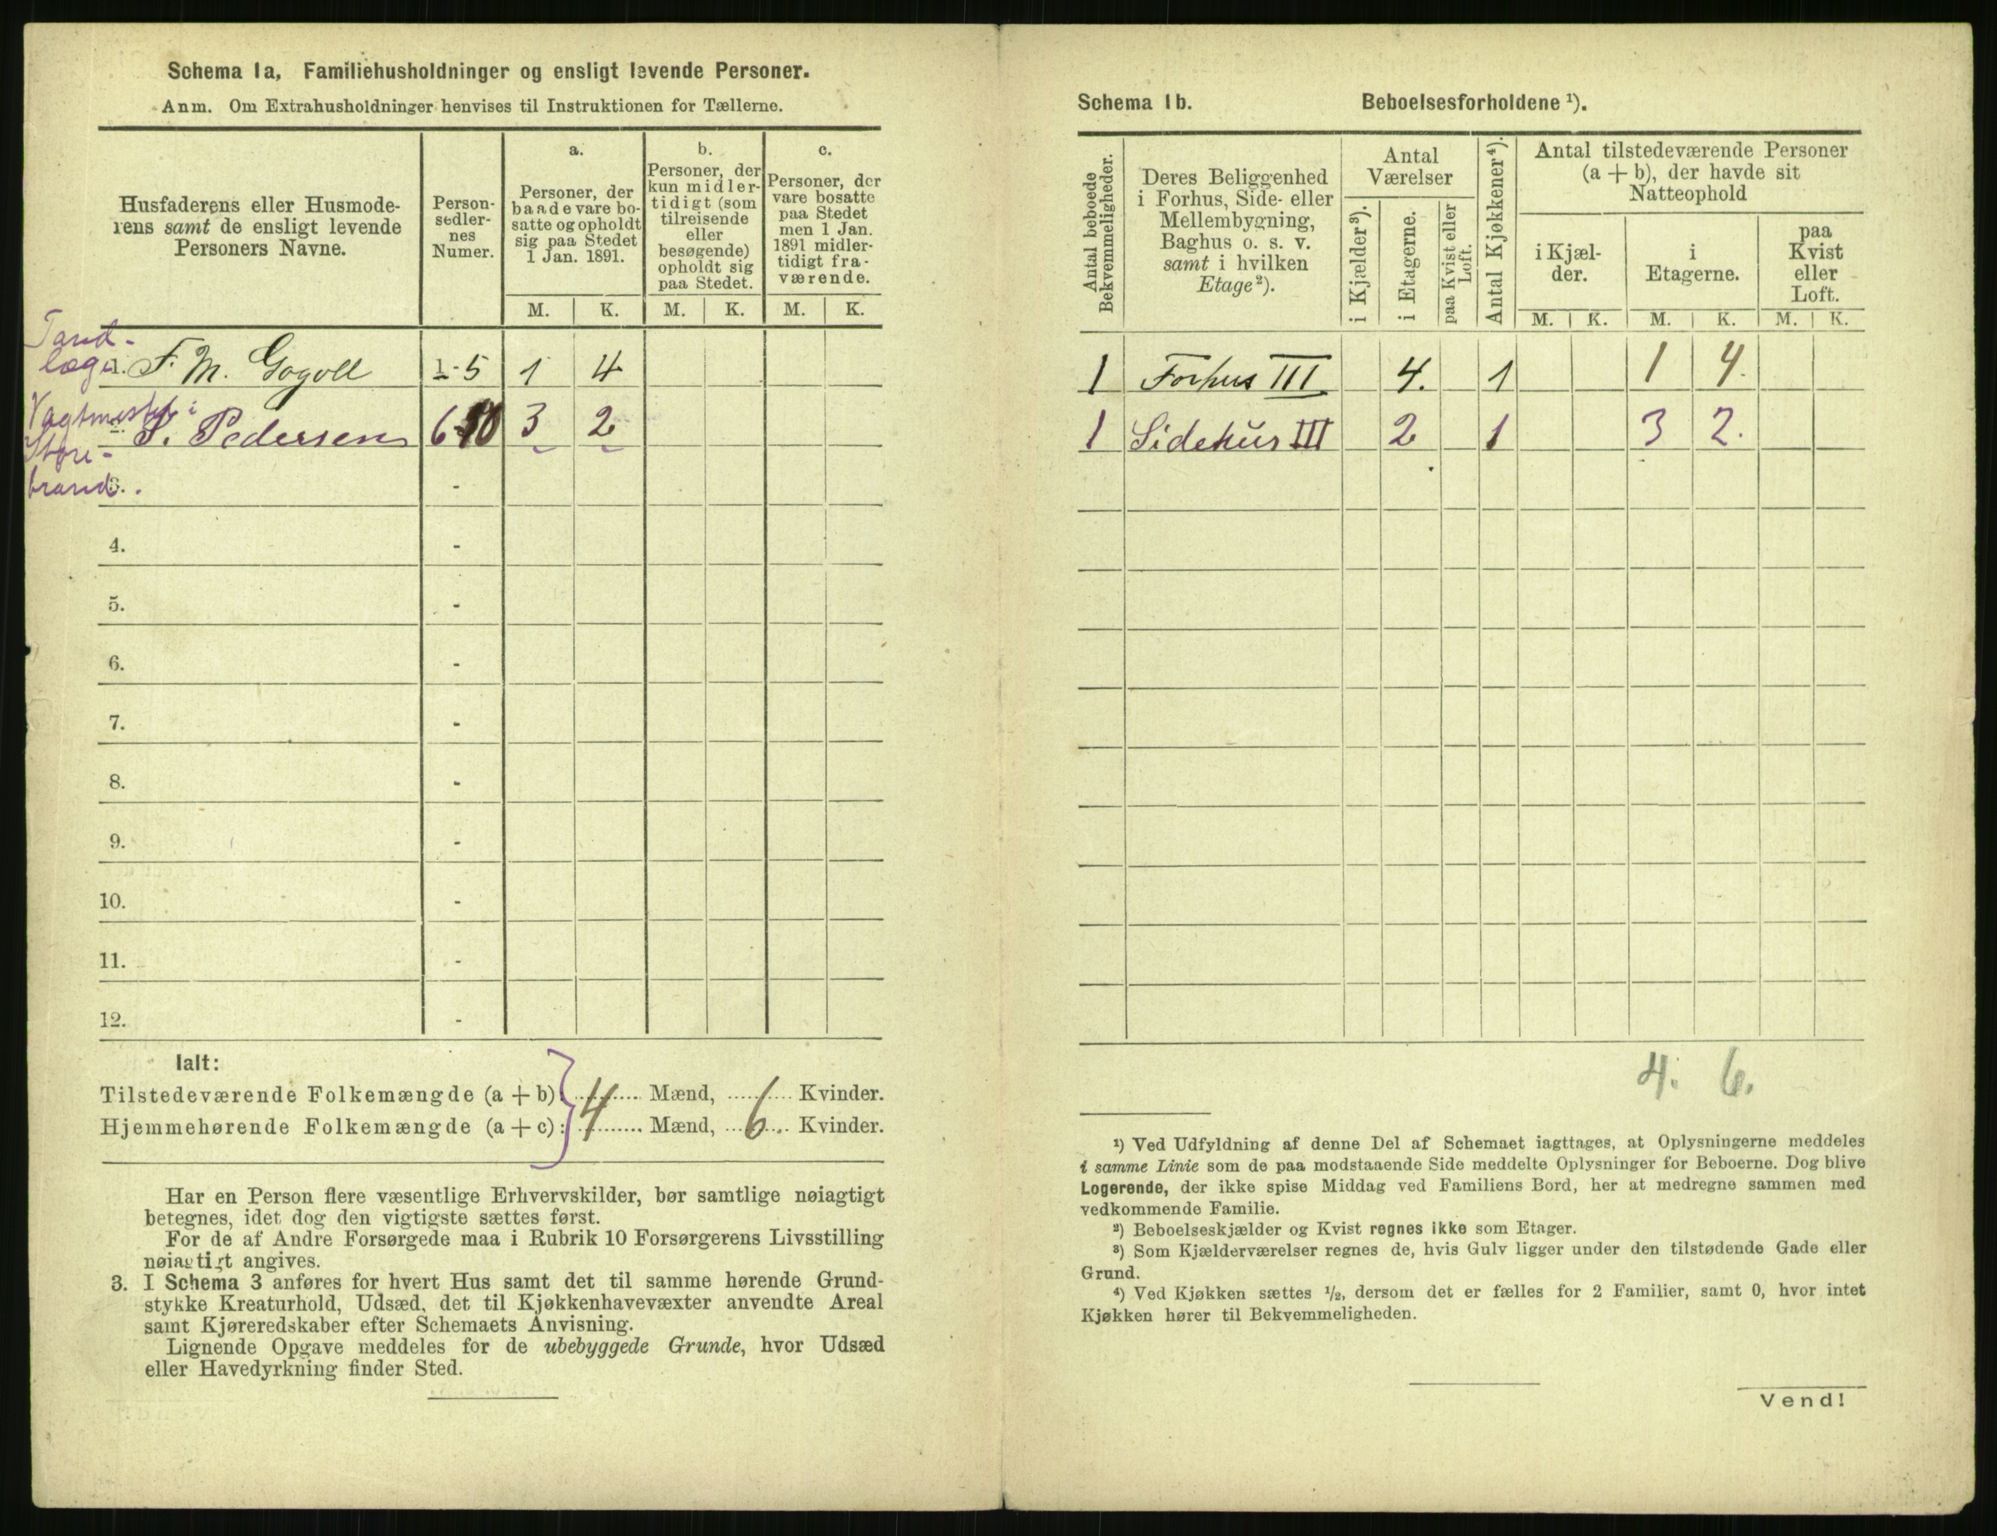 Schema 1a, Familiehusholdninger og ensligt levende Personer.
Anm. Om Extrahusholdninger henvises til Instruktionen for Tællerne.
Husfaderens eller Husmoderens samt de ensligt levende Personers Navne.
Personsedlernes Numer.
a.
Personer, der baade vare bosatte og opholdt sig paa Stedet 1 Jan. 1891.
b.
Personer, der kun midlertidigt (som tilreisende eller besøgende) opholdt sig paa Stedet.
c.
Personer, der vare bosatte paa Stedet men 1 Jan. 1891 midlertidigt fraværende.
M. K. M. K. M. K.
Tandlæge
1. F. M. Gogoll 1-5 1 4
Vagtmester i
2. S. Pedersen 6-10 3 2
Storebrand.
3. -
4. -
5. -
6. -
7. -
8. -
9. -
10. -
11. -
12. -
Ialt:
Tilstedeværende Folkemængde (a + b): 4 Mænd, 6 Kvinder.
Hjemmehørende Folkemængde (a + c): Mænd, Kvinder.
Har en Person flere væsentlige Erhvervskilder, bør samtlige nøiagtigt
betegnes, idet dog den vigtigste sættes først.
For de af Andre Forsørgede maa i Rubrik 10 Forsørgerens Livsstilling
nøiagtigt angives.
3. I Schema 3 anføres for hvert Hus samt det til samme hørende Grund-
stykke Kreaturhold, Udsæd, det til Kjøkkenhavevæxter anvendte Areal
samt Kjøreredskaber efter Schemaets Anvisning.
Lignende Opgave meddeles for de ubebyggede Grunde, hvor Udsæd
eller Havedyrkning finder Sted.
Schema 1b. Beboelsesforholdene ¹).
Antal beboede Bekvemmeligheder.
Deres Beliggenhed i Forhus, Side- eller Mellembygning, Baghus o. s. v. samt i hvilken Etage²).
Antal Værelser
i Kjælder³).
i Etagerne.
paa Kvist eller Loft.
Antal Kjøkkener⁴).
Antal tilstedeværende Personer (a + b), der havde sit Natteophold
i Kjælder.
i Etagerne.
paa Kvist eller Loft.
M. K. M. K. M. K.
1 Forhus III 4. 1 1 4.
1 Sidehus III 2 1 3 2.
4. 6.
¹) Ved Udfyldning af denne Del af Schemaet iagttages, at Oplysningerne meddeles
i samme Linie som de paa modstaaende Side meddelte Oplysninger for Beboerne. Dog blive
Logerende, der ikke spise Middag ved Familiens Bord, her at medregne sammen med
vedkommende Familie.
²) Beboelseskjælder og Kvist regnes ikke som Etager.
³) Som Kjælderværelser regnes de, hvis Gulv ligger under den tilstødende Gade eller
Grund.
⁴) Ved Kjøkken sættes ½, dersom det er fælles for 2 Familier, samt 0, hvor intet
Kjøkken hører til Bekvemmeligheden.
Vend!